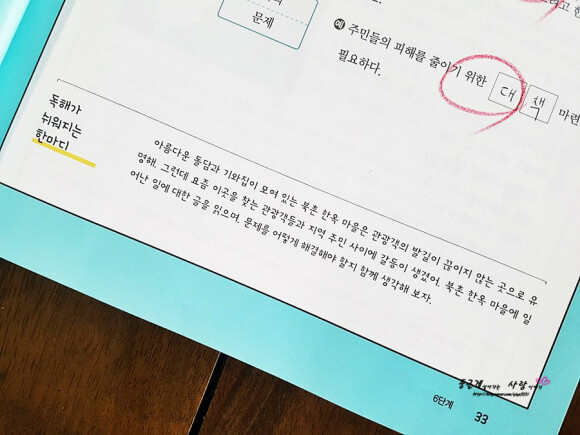 문제
예 주민들의 피해를 줄이기 위한 대 책 마련
필요하다.
독해가
쉬워지는
한마디
아름다운 돌담과 기와집이 모여 있는 북촌 한옥 마을은 관광객의 발길이 끊이지 않는 곳으로 유
명해. 그런데 요즘 이곳을 찾는 관광객들과 지역 주민 사이에 갈등이 생겼어. 북촌 한옥 마을에 일
어난 일에 대한 글을 읽으며, 문제를 어떻게 해결해야 할지 함께 생각해 보자.
6단계 33